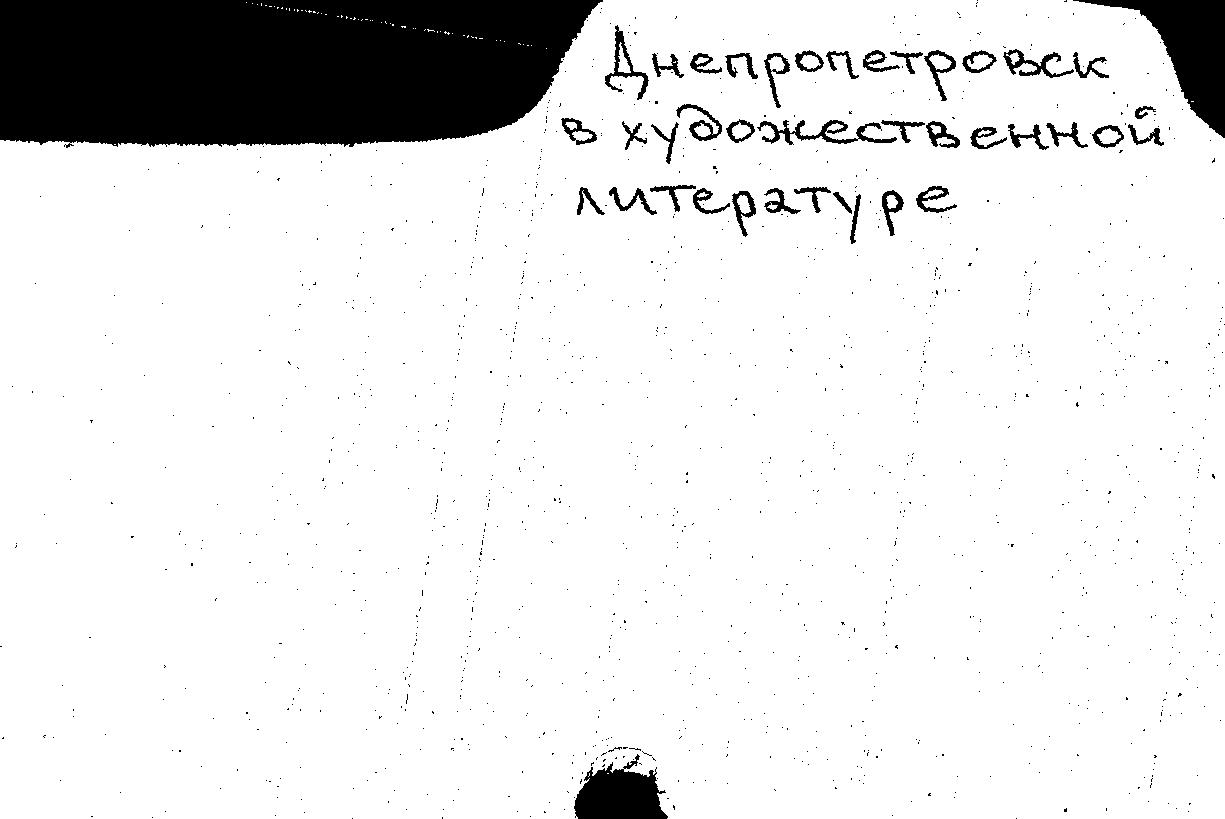 Днепропетровск
в художественной
литературе